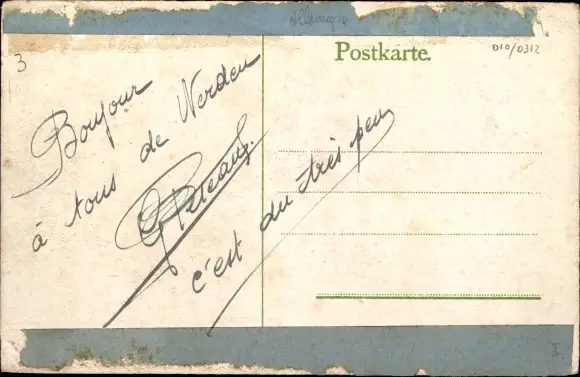 Allemagne
Postkarte.
010/0312
3
Bonjour
à tous de Werden
c'est du très peu
I.